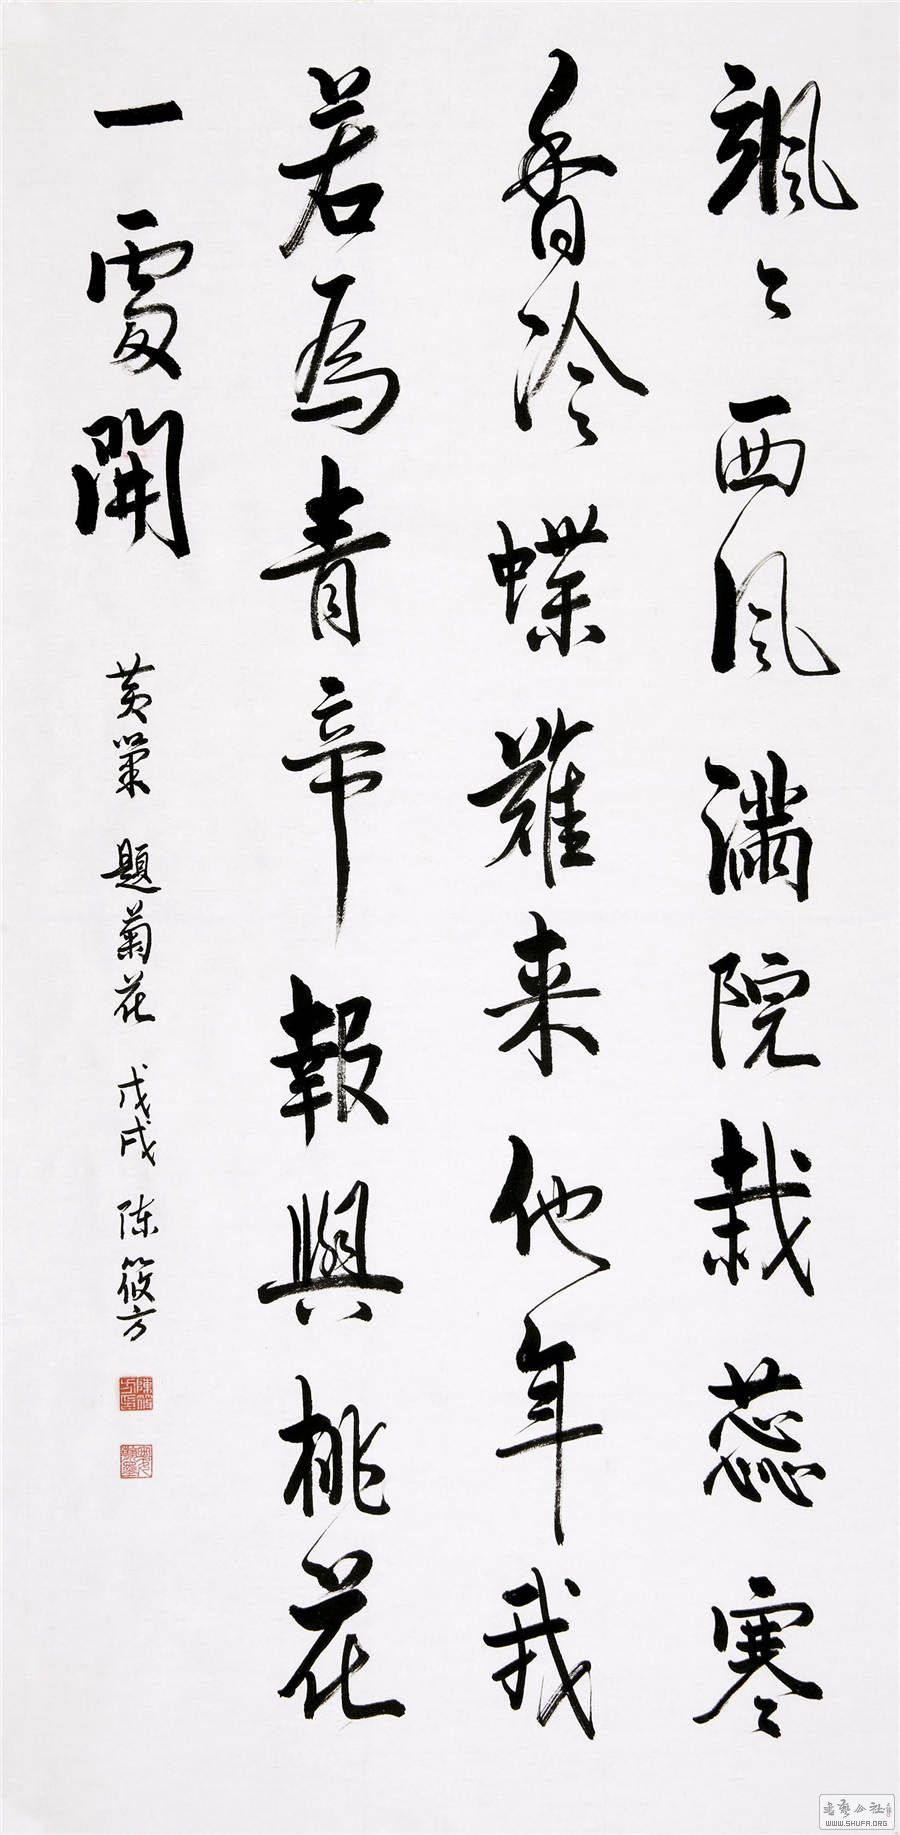 飒〻西風滿院栽蕊寒
香冷蝶難来他年我
若為青帝報與桃花
一處開
黄巢 題菊花 戊戌 陈筱方
WWW.SHUFA.ORG